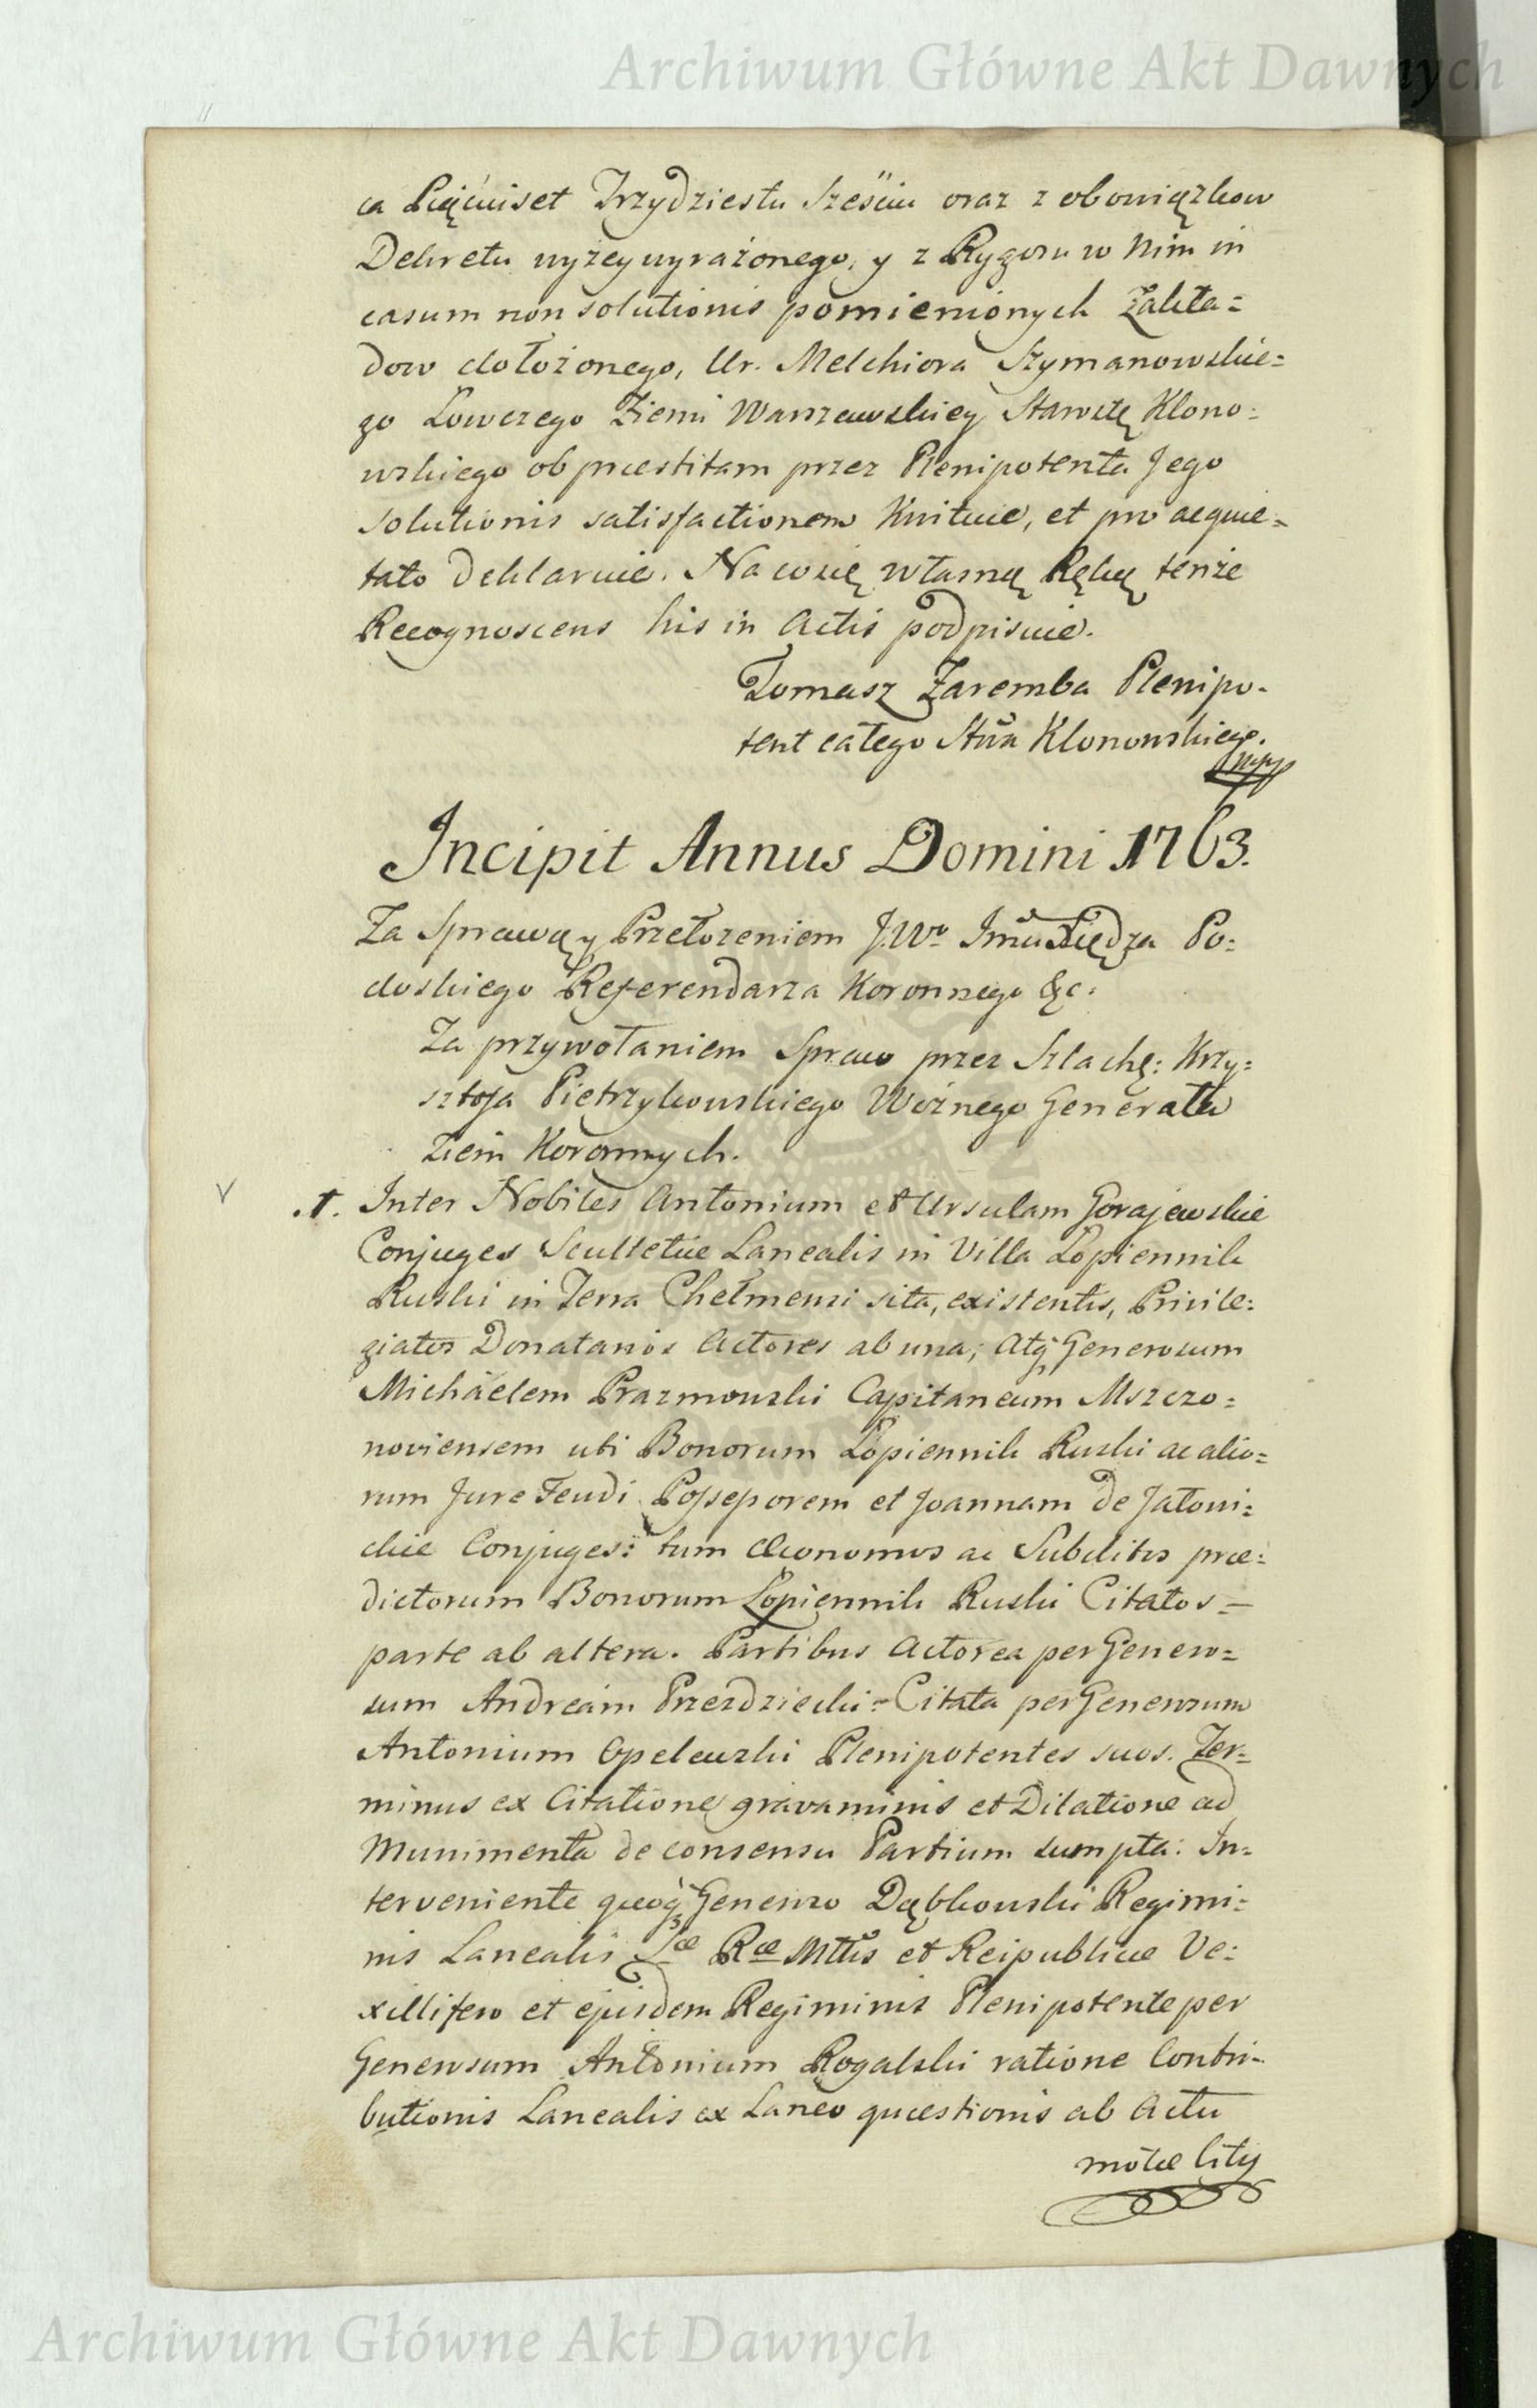 Archiwum Główne Akt Dawnych
ca Pięciuset Trzydziestu Sześciu oraz z obowiązkow
Dekretu wyżey wyrażonego, y z Rygoru w Nim in
casum non solutionis pomienionych Zakła=
dow dołożonego, Ur. Melchiora Szymanowskie=
go Łowczego Ziemi Warszawskiey Starostę Klono=
wskiego ob præstitam przez Plenipotenta Jego
solutionis satisfactionem kwituie, et pro acquie=
tato deklaruie. Na co się własną Ręką tenże
Recognoscens his in Actis podpisuie.
Tomasz Zaremba Plenipo-
tent całego Sttwa Klonowskiego.
mpp
Incipit Annus Domini 1763.
Za Sprawą y Przełożeniem J.W° Imci Xiędza Po=
doskiego Referendarza Koronnego &c:
Za przywołaniem Spraw przez Szlachę: Krzy=
sztofa Pietrzykowskiego Woźnego Generała
Ziem Koronnych.
1. Inter Nobiles Antonium et Ursulam Gorajewskie
Conjuges Scultetiæ Lanealis in Villa Łopiennik
Ruski in Terra Chełmensi sita, existentis, Privile=
giatos Donatarios Actores ab una; Atq Generosum
Michaelem Prazmowski Capitaneum Mszczo=
noviensem uti Bonorum Łopiennik Ruski ac alio=
rum Jure Feudi Possessorem et Joannam de Jatoni=
ckie Conjuges: tum Œconomos ac Subditos præ=
dictorum Bonorum Łopiennik Ruski Citatos =
parte ab altera. Partibus Actorea per Genero=
sum Andream Przezdziecki = Citata per Generosum
Antonium Opelewski Plenipotentes suos. Ter=
minus ex Citatione gravaminis et Dilatione ad
Munimenta de consensu Partium sumpta: In=
terveniente quoq Generoso Dąbkowski Regimi=
nis Lanealis Sæ Ræ Mttis et Reipublicæ Ve=
xillifero et ejusdem Regiminis Plenipotente per
Generosum Antonium Rogalski ratione Contri-
butionis Lanealis ex Laneo quæstionis ab Actu
motæ City
Archiwum Główne Akt Dawnych